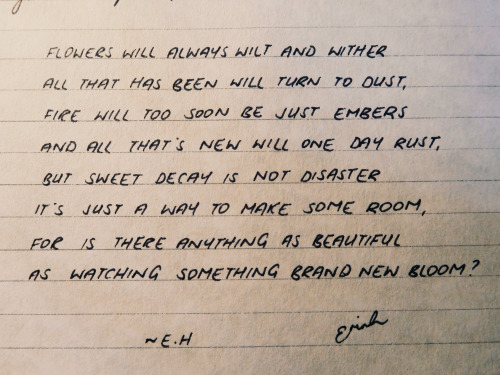 FLOWERS WILL ALWAYS WILT AND WITHER
ALL THAT HAS BEEN WILL TURN TO DUST,
FIRE WILL TOO SOON BE JUST EMBERS
AND ALL THAT'S NEW WILL ONE DAY RUST,
BUT SWEET DECAY IS NOT DISASTER
IT'S JUST A WAY TO MAKE SOME ROOM,
FOR IS THERE ANYTHING AS BEAUTIFUL
AS WATCHING SOMETHING BRAND NEW BLOOM?
~E.H